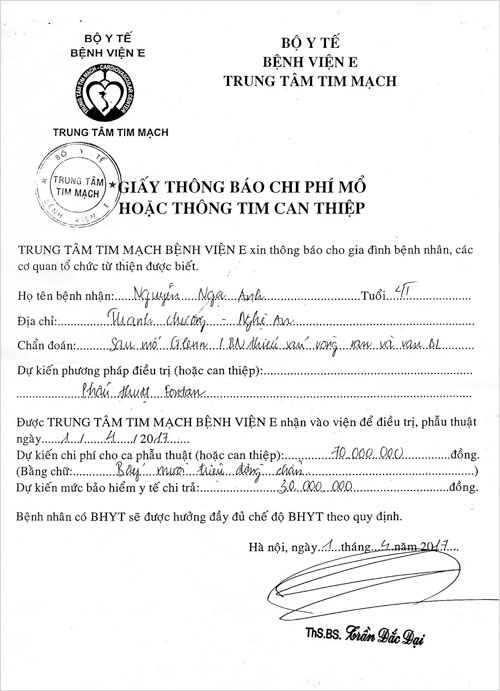 BỘ Y TẾ
BỆNH VIỆN E
TRUNG TÂM TIM MẠCH - CARDIOVASCULAR CENTER
TRUNG TÂM TIM MẠCH
BỘ Y TẾ
BỆNH VIỆN E
TRUNG TÂM TIM MẠCH
BỘ Y TẾ
TRUNG TÂM
TIM MẠCH
BỆNH VIỆN E
GIẤY THÔNG BÁO CHI PHÍ MỔ
HOẶC THÔNG TIM CAN THIỆP
TRUNG TÂM TIM MẠCH BỆNH VIỆN E xin thông báo cho gia đình bệnh nhân, các
cơ quan tổ chức từ thiện được biết.
Họ tên bệnh nhân: Nguyễn Nga Anh Tuổi 4T
Địa chỉ: Thanh chương - Nghệ An
Chẩn đoán: Sau mổ Glenn / BN thiếu sản vòng van và van BL
Dự kiến phương pháp điều trị (hoặc can thiệp):
Phẫu thuật Fontan
Được TRUNG TÂM TIM MẠCH BỆNH VIỆN E nhận vào viện để điều trị, phẫu thuật
ngày 1 / 4 / 2017
Dự kiến chi phí cho ca phẫu thuật (hoặc can thiệp): 70.000.000 đồng.
(Bằng chữ: Bảy mươi triệu đồng chẵn)
Dự kiến mức bảo hiểm y tế chi trả: 30.000.000 đồng.
Bệnh nhân có BHYT sẽ được hưởng đầy đủ chế độ BHYT theo quy định.
Hà nội, ngày 1 tháng 4 năm 2017
ThS.BS. Trần Đắc Đại